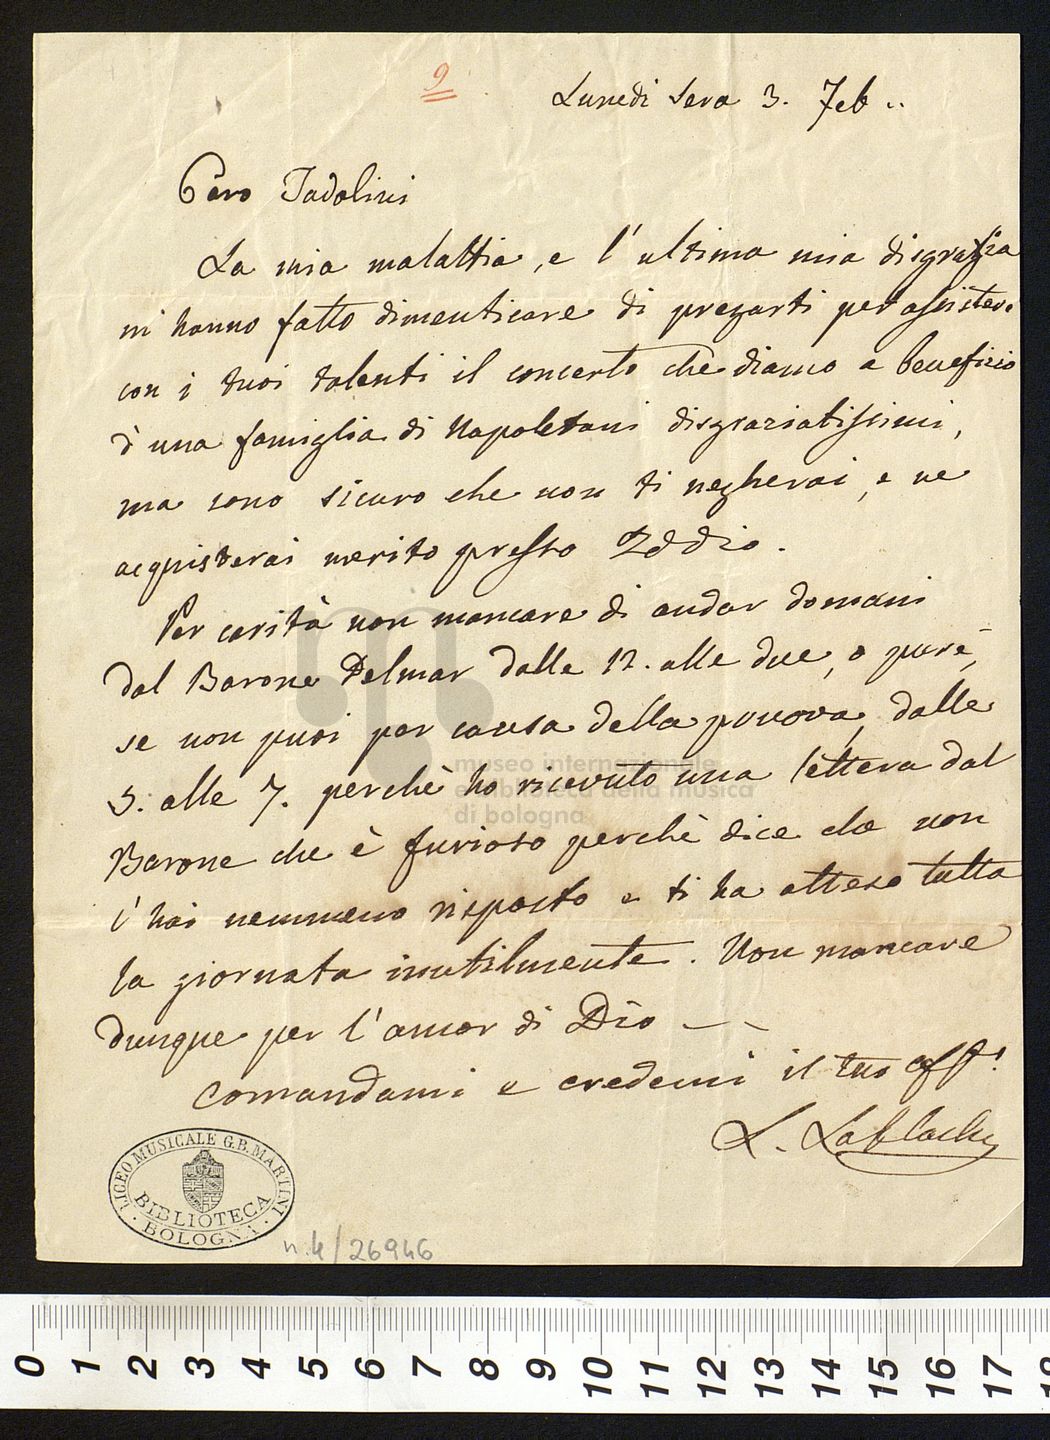 9
Lunedi sera 3. Feb..
Caro Tadolini
La mia malattia, e l'ultima mia disgrazia
mi hanno fatto dimenticare di pregarti per assistere
con i tuoi talenti il concerto che diamo a beneficio
d'una famiglia di Napoletani disgraziatissimi,
ma sono sicuro che non ti negherai, e ne
acquisterai merito presso Iddio.
Per carità non mancare di andar domani
dal Barone Delmar dalle 12. alle due, o pure,
se non puoi per causa della pruova, dalle
5. alle 7. perchè ho ricevuto una lettera dal
Barone che è furioso perchè dice che non
l'hai nemmeno risposto e ti ha atteso tutta
la giornata inutilmente. Non mancare
dunque per l'amor di Dio
Comandami e credemi il tuo aff.
L. Lablache
museo internazionale
e biblioteca della musica
di bologna
LICEO MUSICALE G.B. MARTINI
BIBLIOTECA
BOLOGNA
n.4/26946
0 1 2 3 4 5 6 7 8 9 10 11 12 13 14 15 16 17 18